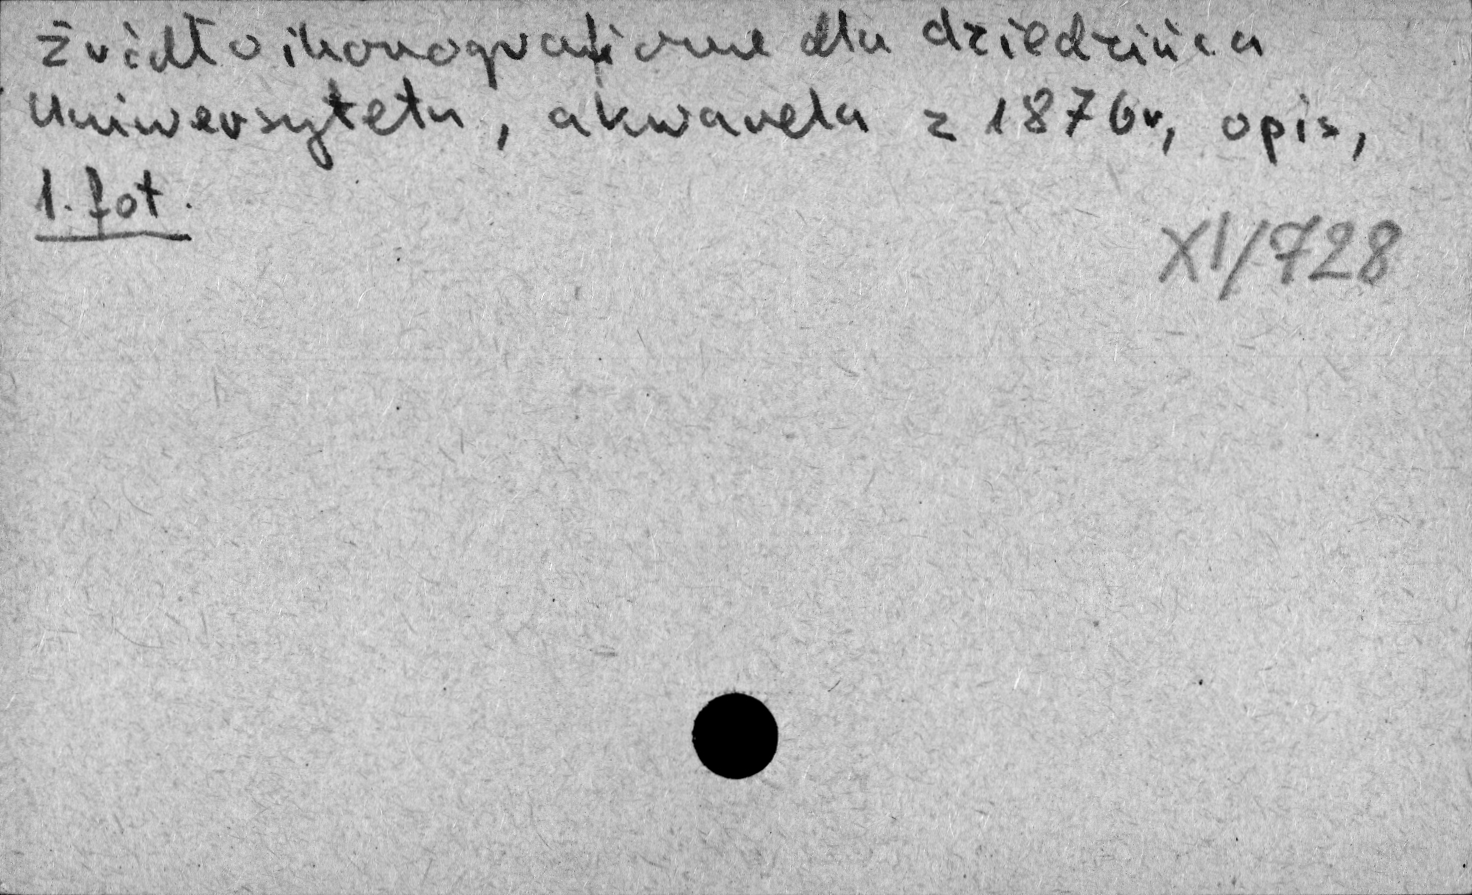 Źródło ikonograficzne dla dziedzińca
Uniwersytetu, akwarela z 1876r, opis,
1. fot.
XI/728